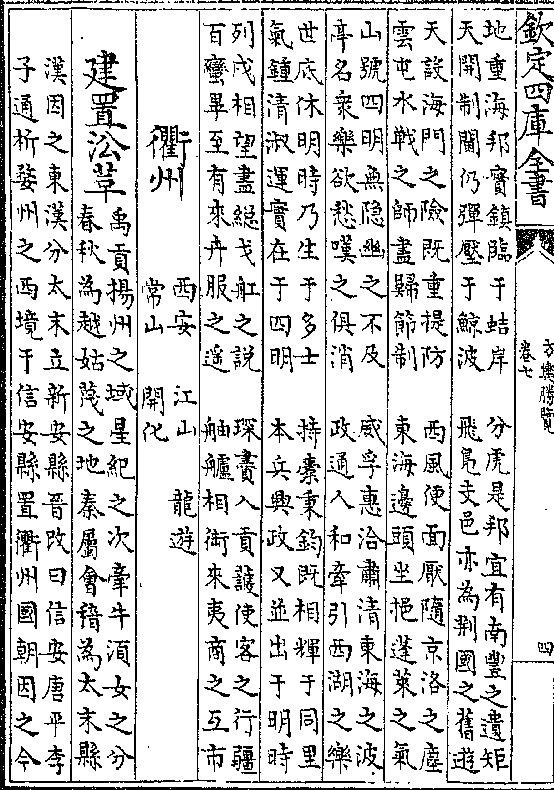 欽定四庫全書
方輿勝覽
卷七
四
地重海邦實鎮臨于蛣岸 分虎是邦宜有南豐之遺矩
天開制閫仍彈壓于鯨波 飛鳧支邑亦為荆國之舊遊
天設海門之險既重提防 西風便面厭隨京洛之塵
雲屯水戰之師盡歸節制 東海邊頭坐挹蓬萊之氣
山號四明無隱幽之不及 威孚惠洽肅清東海之波
亭名衆樂欲愁嘆之俱消 政通人和牽引西湖之樂
世底休明時乃生于多士 持橐秉鈞既相輝于同里
氣鍾清淑運實在于四明 本兵興政又並出于明時
列戍相望盡總戈舡之說 琛賮入貢護使客之行疆
百蠻畢至有來卉服之遥 舳艫相銜來夷商之互市
衢州
西安 江山 龍遊
常山 開化
建置沿革
禹貢揚州之域星紀之次牽牛須女之分
春秋為越姑蔑之地秦屬會稽為太末縣
漢因之東漢分太末立新安縣晉改曰信安唐平李
子通析婺州之西境于信安縣置衢州國朝因之今